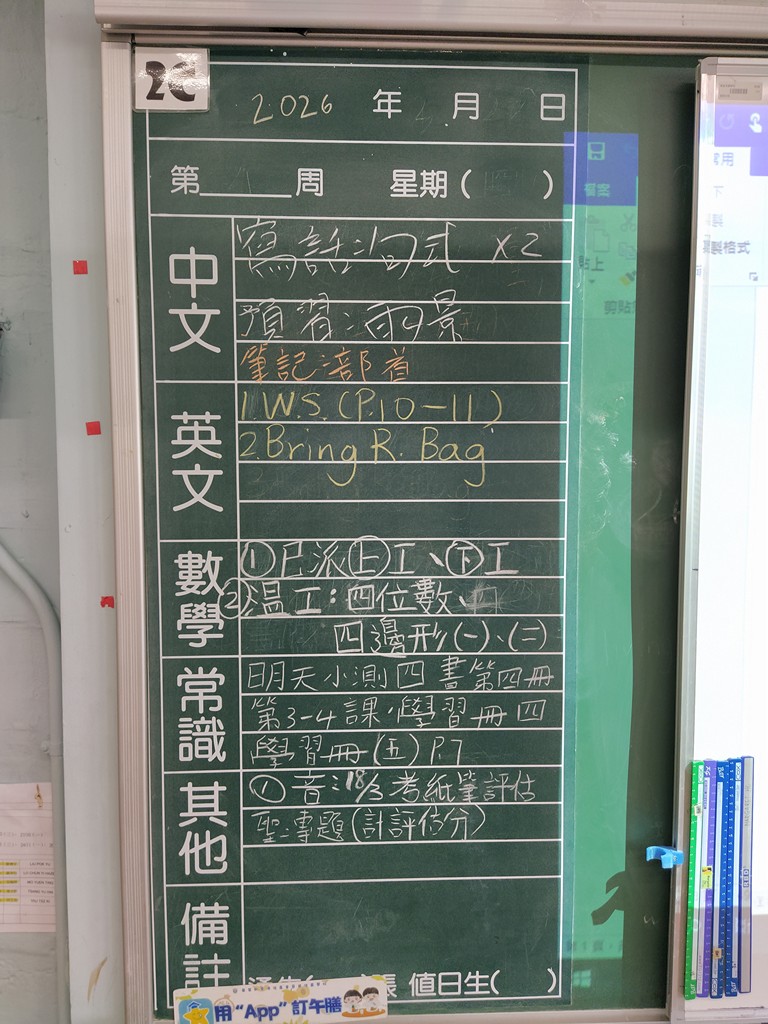 2C
2026 年 月 日
第 周 星期( )
中文
寫話:句式 x2
預習:雨景
筆記:部首
英文
1.W.S.(P.10-11)
2.Bring R. Bag
數學
①已派㊤工、㊦工
②溫工:四位數、
四邊形(一)、(二)
常識
明天小測四 書第四冊
第3-4課,學習冊四
學習冊(五) P.7
其他
① 音:18/3 考紙筆評估
聖:專題(計評估分)
備註
值日生( )
用“App”訂午膳
常用
檔案
下
貼上
製格式
剪貼